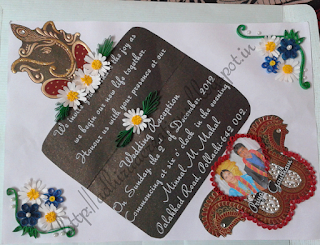 We invite you to share the joy as
we begin our new life together.
Honour us with your presence at our
Wedding Reception
On Sunday, the 2nd of December 2012,
Commencing at six o'clock in the evening
Minnel M Mahal
Palakkad Road, Pollachi 642 002.